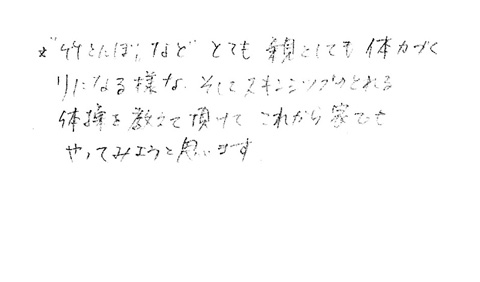 "竹とんぼ"など とても 親としても 体力づく
りになる様な、そしてスキンシップのとれる
体操を教えて頂けて これから家でも
やってみようと思います